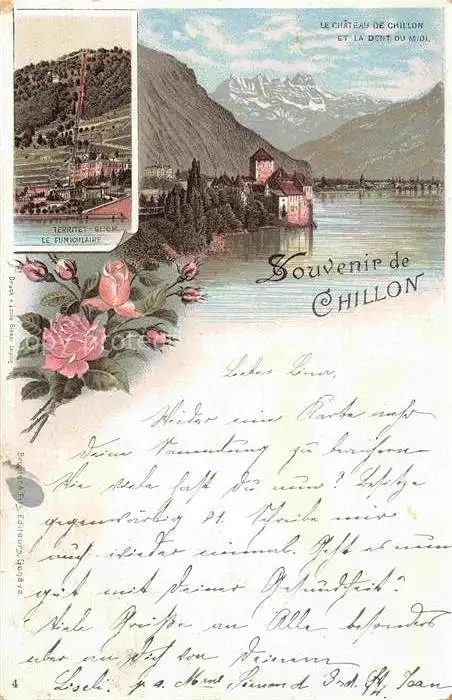 LE CHÂTEAU DE CHILLON
ET LA DENT DU MIDI.
TERRITET-GLION
LE FUNICULAIRE
Souvenir de
CHILLON
Druck v. Louis Glaser Leipzig
Editeurs, Genève.
Liebes
Wieder eine Karte mehr
Deine Sammlung zu bereichern
Wie viele hast Du nun? Besitze
gegenwärtig 81. Schreibe mir
auch wieder einmal. Geht es nun
gut mit Deiner Gesundheit?
Viele Grüße an Alle besonders
aber an Dich von Deinem
p. a. Mme
4